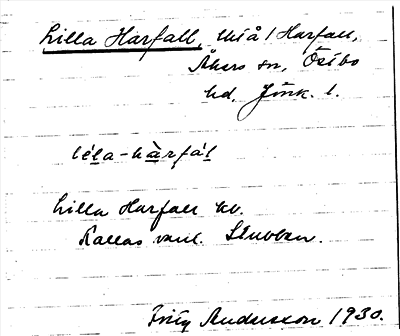 Lilla Harfall, uti å / Harfall,
Åkers sn, Östbo
hd, Jönk. l.
lé̱la-hà̱rfá̱l
Lilla Harfall kv.
Kallas vanl. Stubben.
Fritz Andersson 1930.